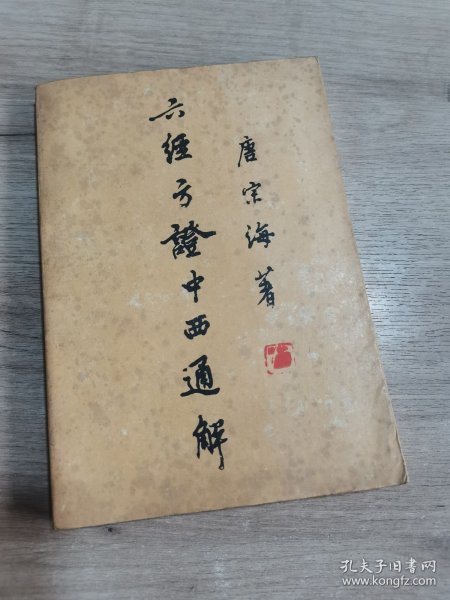 六經方證中西通解
唐宗海著
孔夫子旧书网
www.kongfz.com